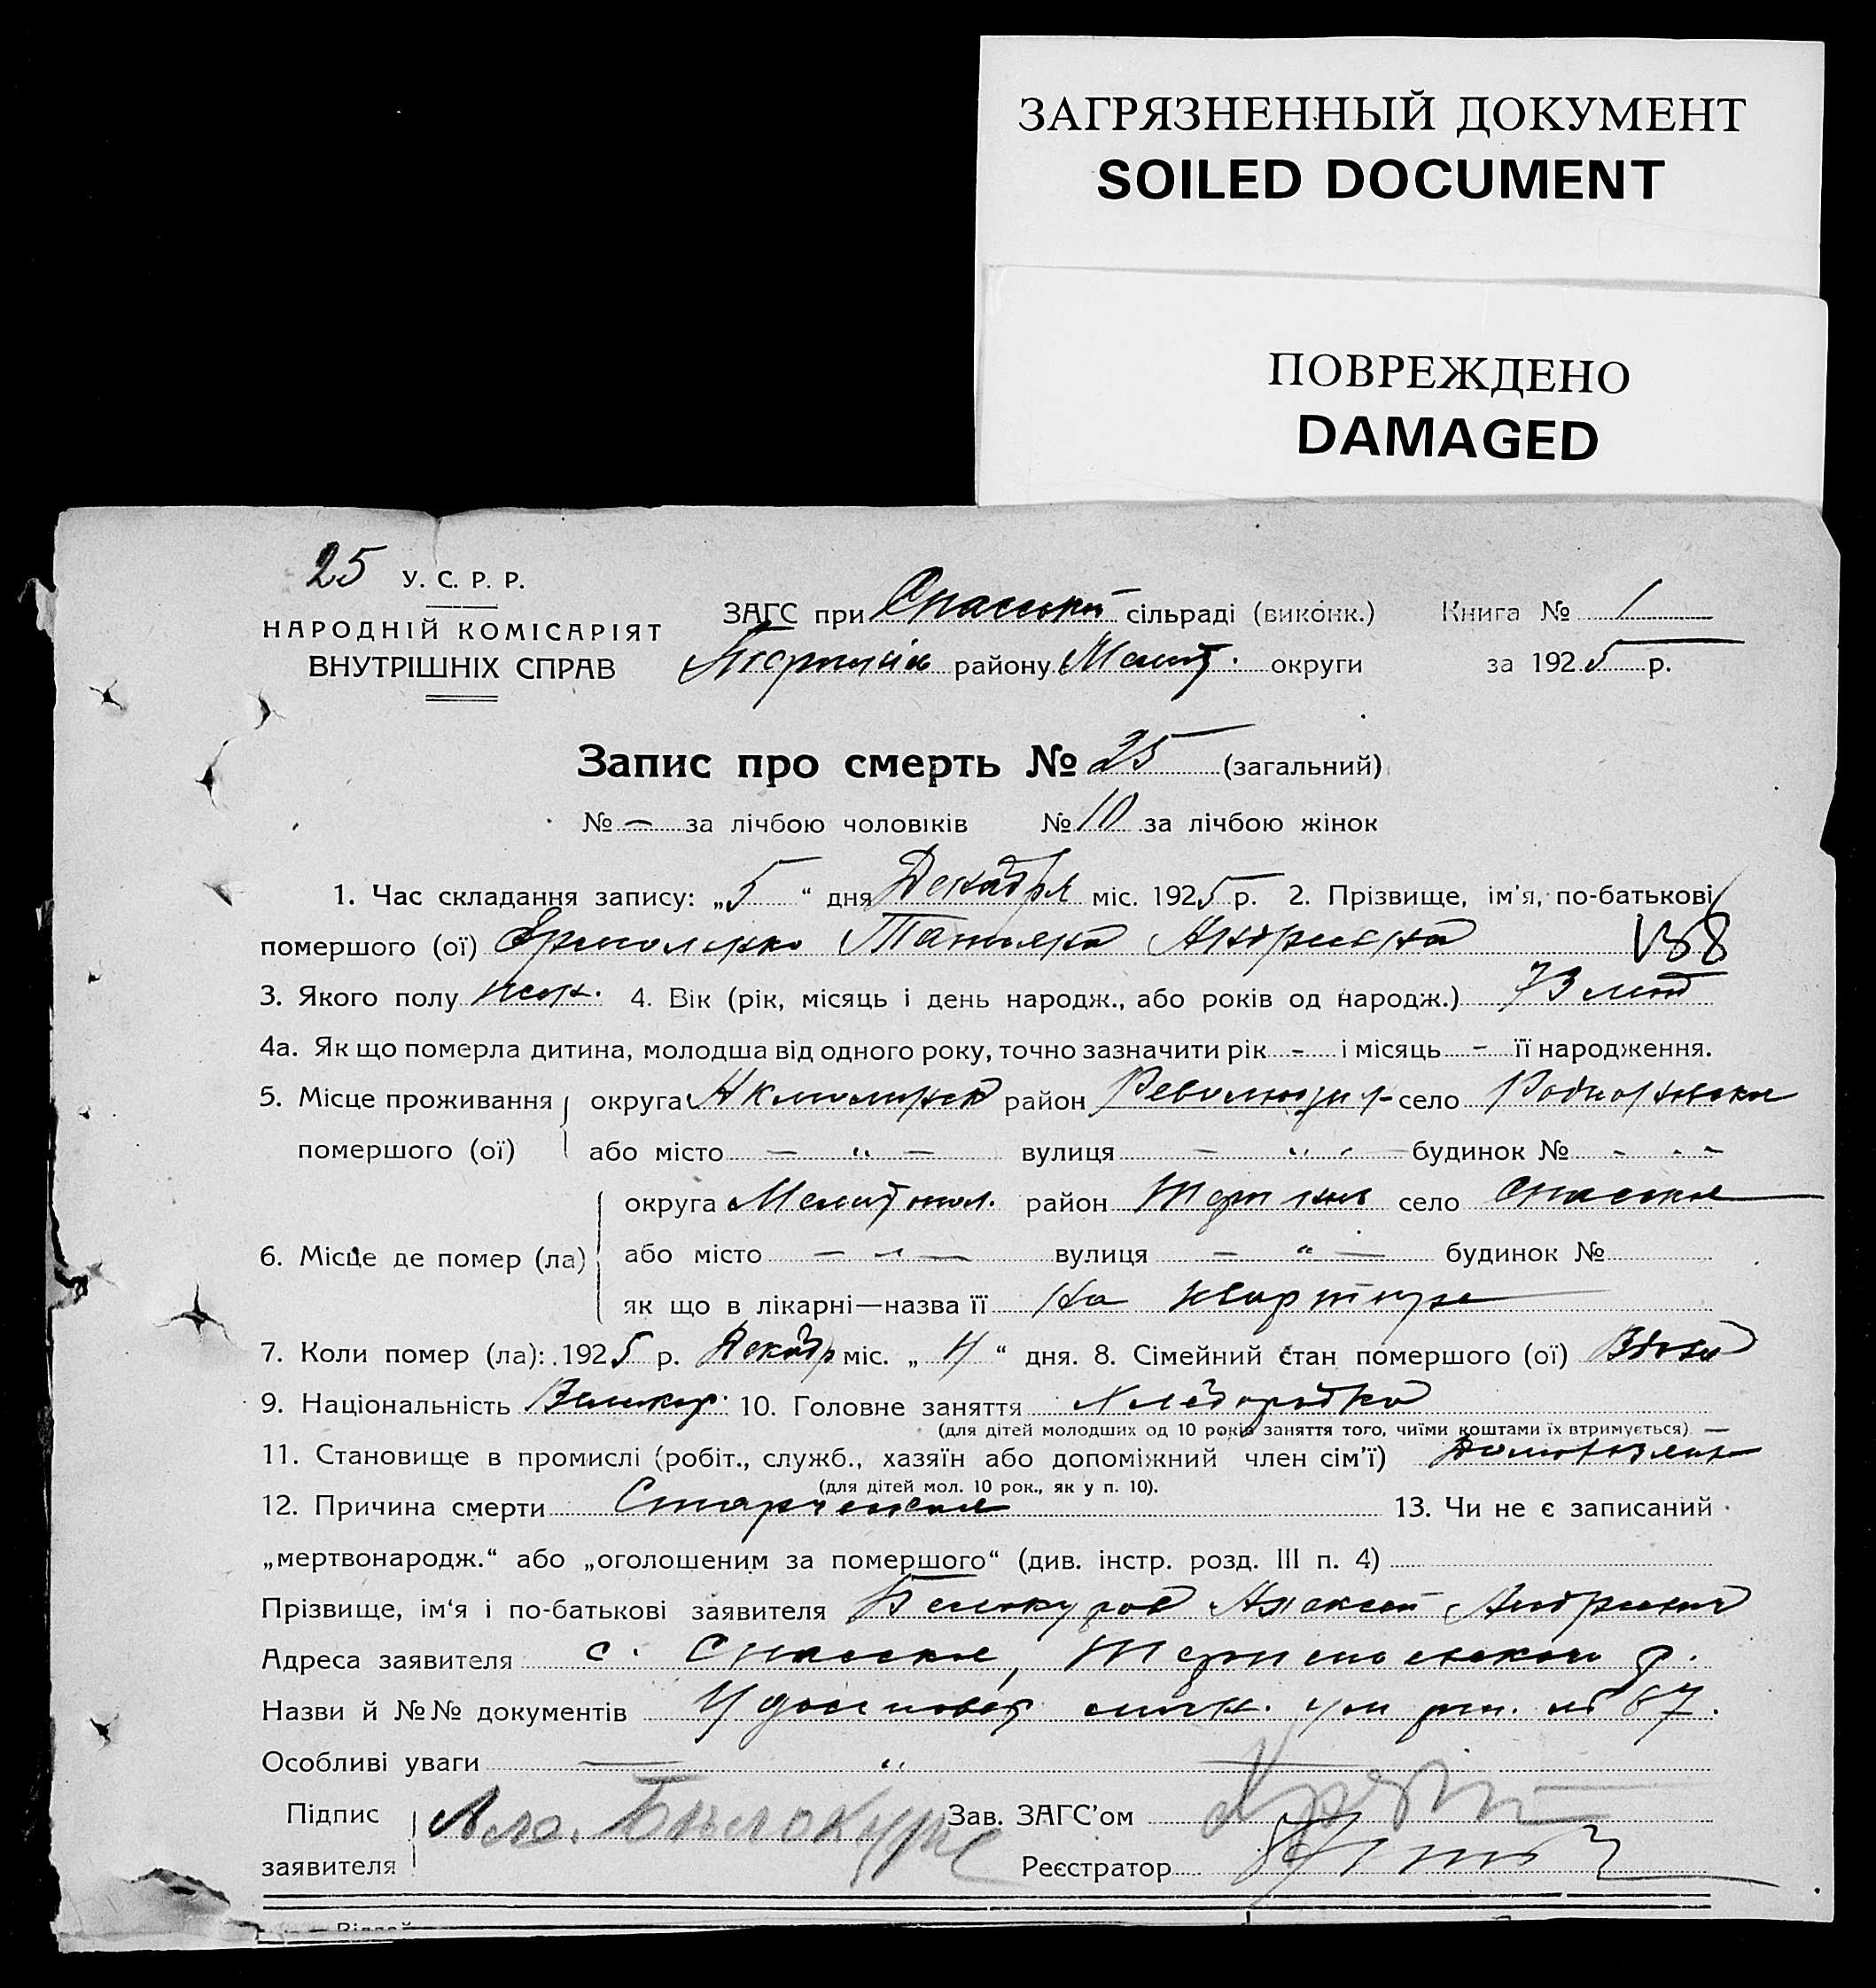 ЗАГРЯЗНЕННЫЙ ДОКУМЕНТ
SOILED DOCUMENT
ПОВРЕЖДЕНО
DAMAGED
25 У. С. Р. Р.
НАРОДНІЙ КОМІСАРІЯТ
ВНУТРІШНІХ СПРАВ
ЗАГС при Спасский сільраді (виконк.) Книга № 1
району Мелит. округи за 1925 р.
Запис про смерть № 25 (загальний)
№ — за лічбою чоловіків № 10 за лічбою жінок
1. Час складання запису: „5“ дня Декабря міс. 1925 р. 2. Прізвище, ім'я, по-батькові
помершого (ої) Ермоленко Татьяна Андреевна
3. Якого полу жен. 4. Вік (рік, місяць і день народж., або років од народж.) 73 лет
4а. Як що померла дитина, молодша від одного року, точно зазначити рік - і місяць - її народження.
5. Місце проживання округа район село
помершого (ої) або місто — „ — вулиця — „ — будинок № - - -
округа Мелитопол. район Терпен село Спаское
6. Місце де помер (ла) або місто — „ — вулиця — „ — будинок №
як що в лікарні—назва її На квартире
7. Коли помер (ла): 1925 р. Декабр міс. „4“ дня. 8. Сімейний стан помершого (ої) Вдова
9. Національність Великор. 10. Головне заняття Хлеборобка
(для дітей молодших од 10 років заняття того, чиїми коштами їх втримується) —
11. Становище в промислі (робіт., служб., хазяїн або допоміжний член сім'ї)
(для дітей мол. 10 рок., як у п. 10).
12. Причина смерти Старческая 13. Чи не є записаний
„мертвонародж.“ або „оголошеним за помершого“ (див. інстр. розд. III п. 4)
Прізвище, ім'я і по-батькові заявителя Белокуров Алексей Андреевич
Адреса заявителя с. Спаское, Терпеньевского р.
Назви й №№ документів Удостовер. личн. № 67.
Особливі уваги — „ —
Підпис
заявителя
Зав. ЗАГС'ом
Реєстратор